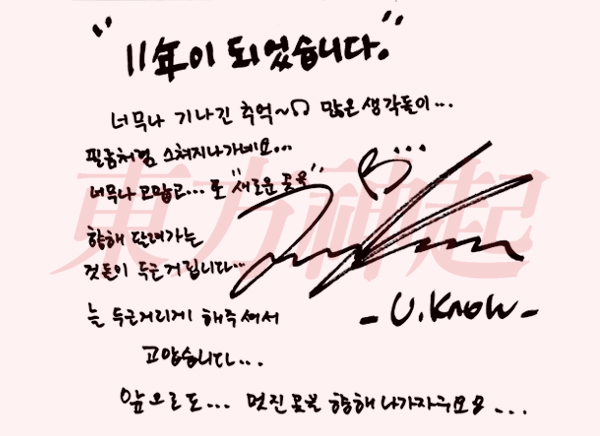 "11年이 되었습니다."
너무나 기나긴 추억~ 많은 생각들이...
필름처럼 스쳐지나가네요...
너무나 고맙고... 또 "새로운
東方神起
향해 달려가는
것들이 두근거립니다...
늘 두근거리게 해주셔서
- U.Know -
고맙습니다...
앞으로도... 멋진 향해 나가자구요...